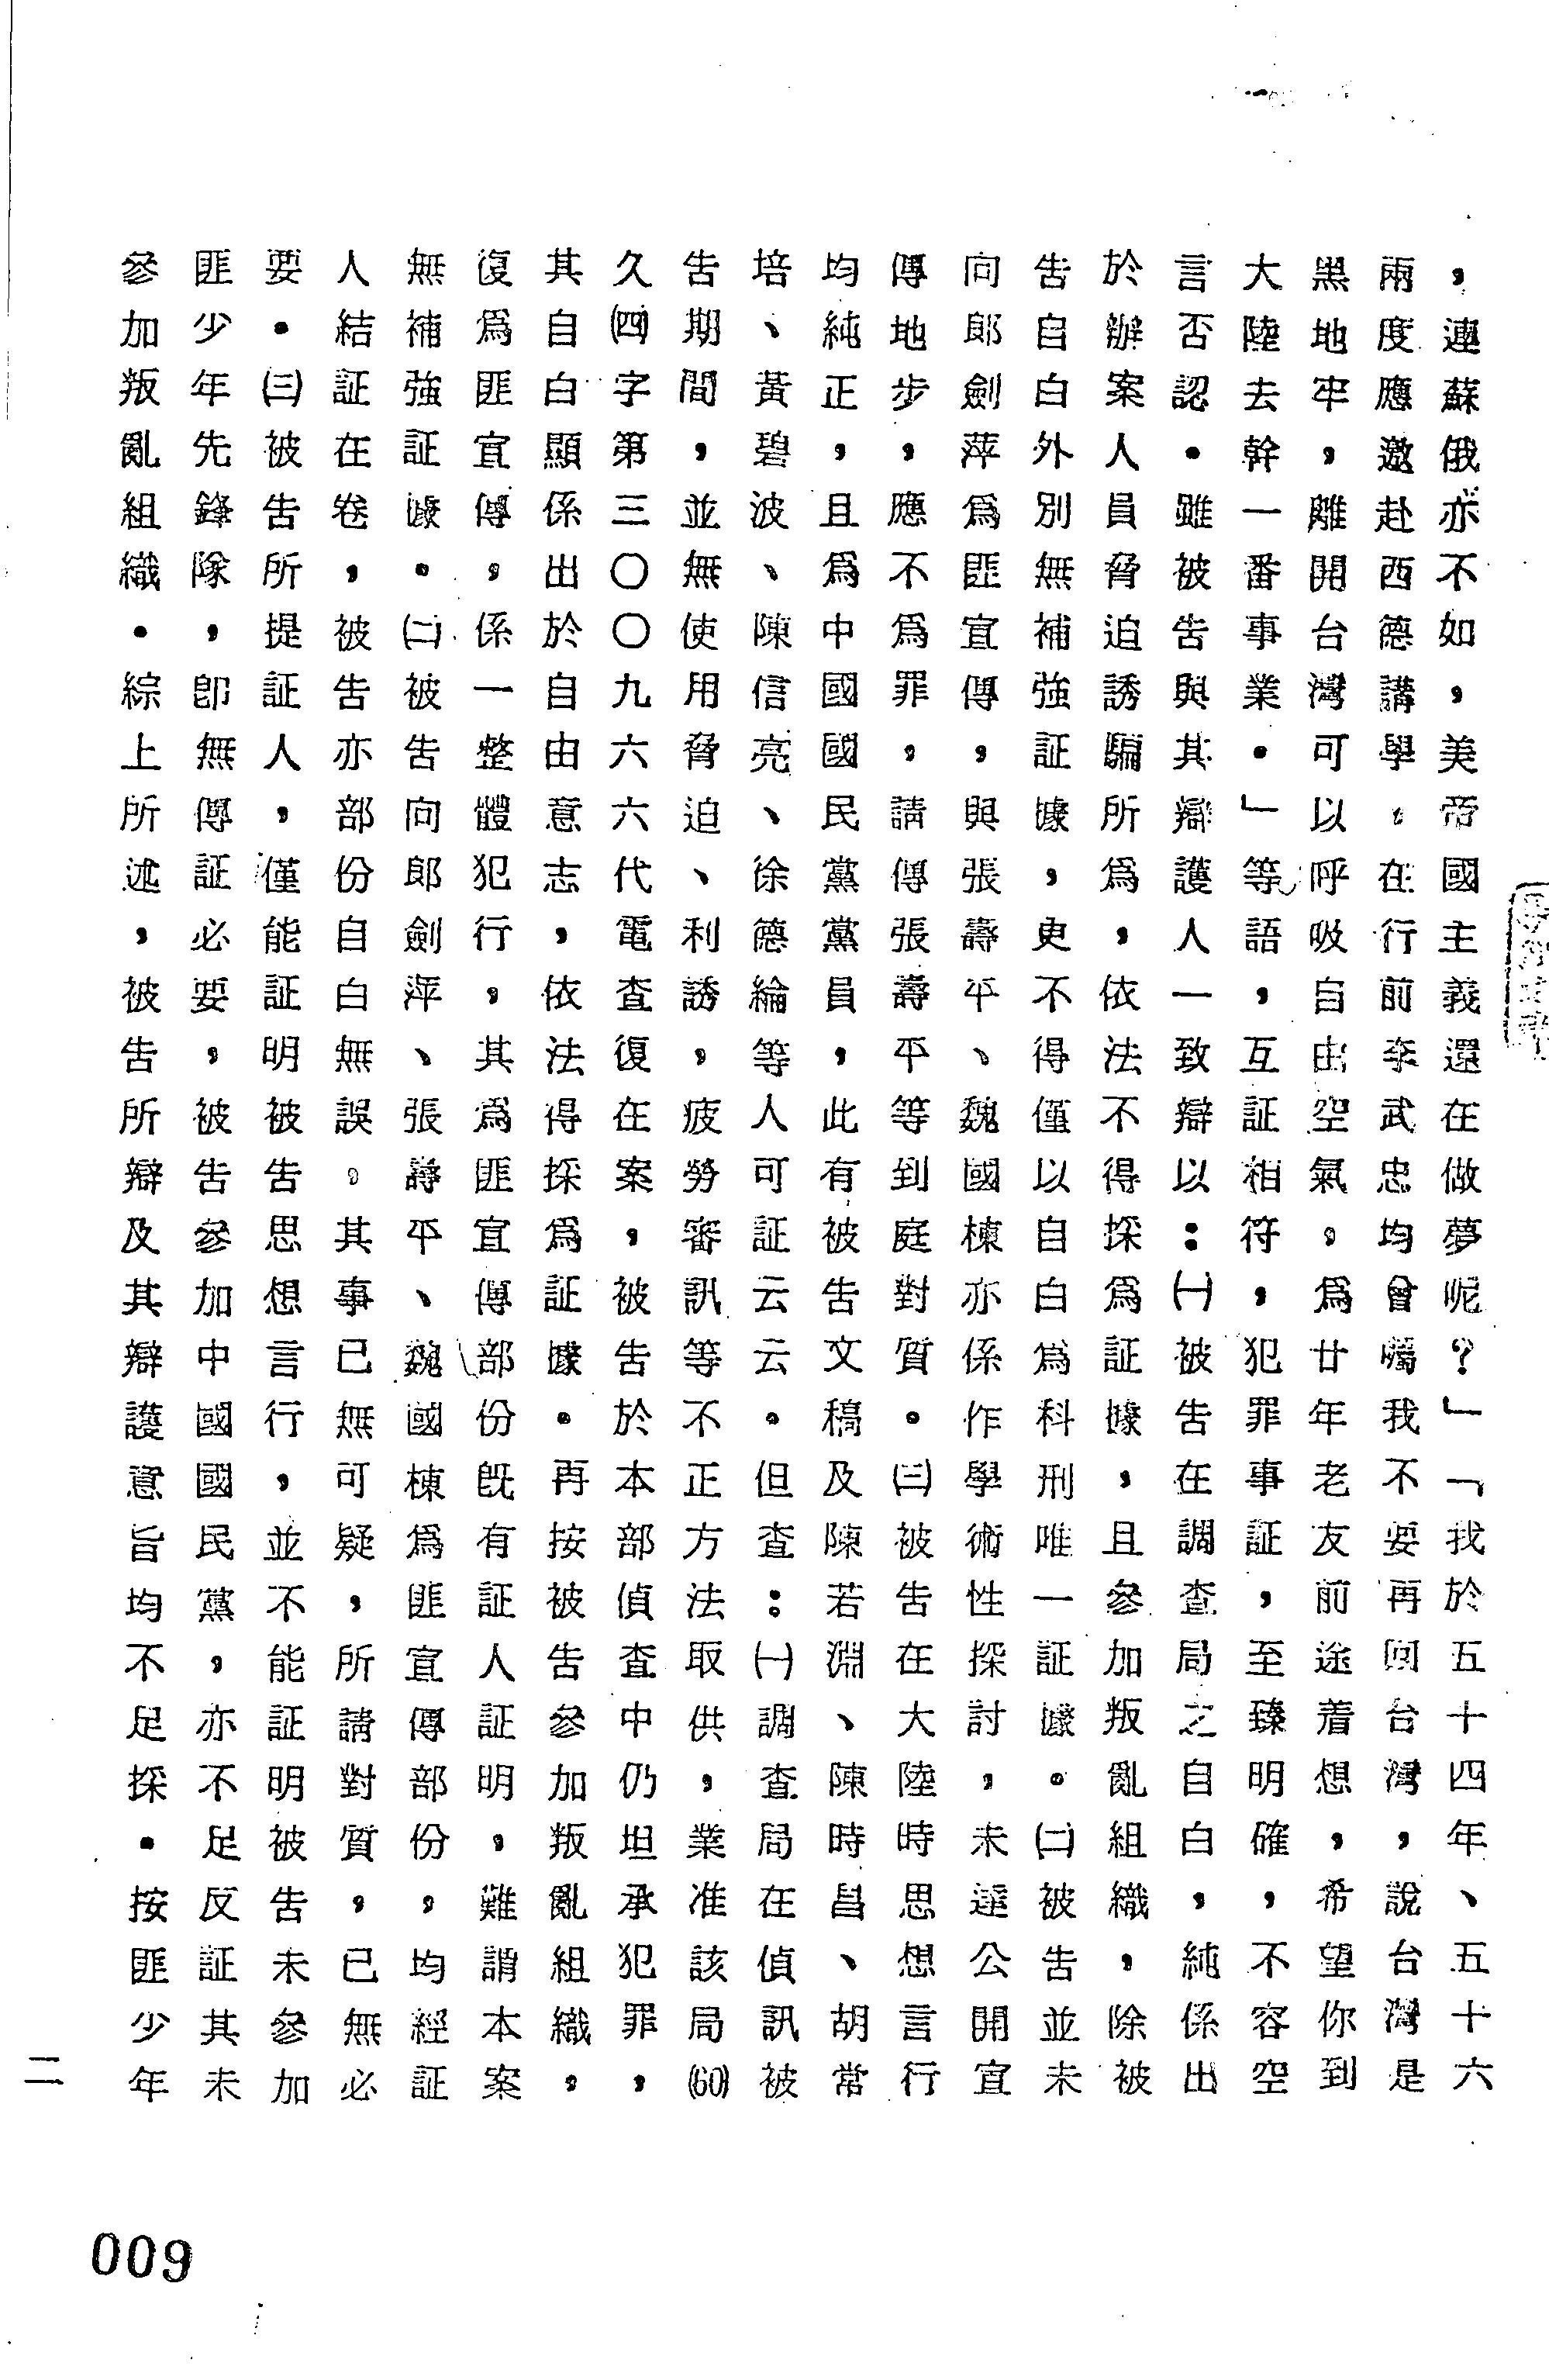 ，連蘇俄亦不如，美帝國主義還在做夢呢？」「我於五十四年、五十六
兩度應邀赴西德講學，在行前李武忠均曾囑我不要再回台灣，說台灣是
黑地牢，離開台灣可以呼吸自由空氣。為廿年老友前途着想，希望你到
大陸去幹一番事業。」等語，互証相符，犯罪事証，至臻明確，不容空
言否認。雖被告與其辯護人一致辯以：㈠被告在調查局之自白，純係出
於辦案人員脅迫誘騙所為，依法不得採為証據，且參加叛亂組織，除被
告自白外別無補強証據，更不得僅以自白為科刑唯一証據。㈡被告並未
向郎劍萍為匪宣傳，與張壽平、魏國棟亦係作學術性探討，未達公開宣
傳地步，應不為罪，請傳張壽平等到庭對質。㈢被告在大陸時思想言行
均純正，且為中國國民黨黨員，此有被告文稿及陳若淵、陳時昌、胡常
培、黃碧波、陳信亮、徐德綸等人可証云云。但查：㈠調查局在偵訊被
告期間，並無使用脅迫、利誘，疲勞審訊等不正方法取供，業准該局(60)
久㈣字第三〇〇九六六代電查復在案，被告於本部偵查中仍坦承犯罪，
其自白顯係出於自由意志，依法得採為証據。再按被告參加叛亂組織，
復為匪宣傳，係一整體犯行，其為匪宣傳部份既有証人証明，難謂本案
無補強証據。㈡被告向郎劍萍、張壽平、魏國棟為匪宣傳部份，均經証
人結証在卷，被告亦部份自白無誤。其事已無可疑，所請對質，已無必
要。㈢被告所提証人，僅能証明被告思想言行，並不能証明被告未參加
匪少年先鋒隊，卽無傳証必要，被告參加中國國民黨，亦不足反証其未
參加叛亂組織。綜上所述，被告所辯及其辯護意旨均不足採。按匪少年
二
009